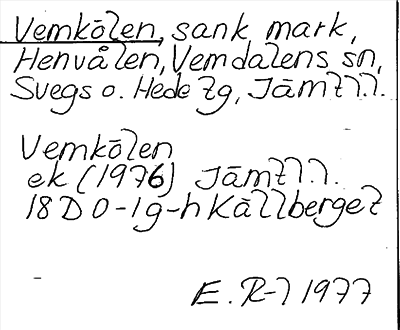 Vemkölen, sank mark,
Henvålen, Vemdalens sn,
Svegs o. Hede tg, Jämtl.l.
Vemkölen
ek (1976) Jämtl.l.
18 D 0-1 g-h Källberget
E. R-l 1977